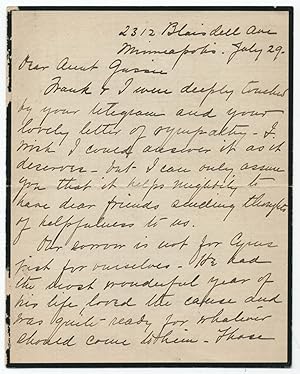 2312 Blaisdell Ave
Minneapolis. July 29.
Dear Aunt Gussie
Frank & I were deeply touched
by your telegram and your
lovely letter of sympathy - I
wish I could answer it as it
deserves - but I can only assure
you that it helps mightily to
have dear friends sending thoughts
of helpfulness to us.
Our sorrow is not for Cyrus
just for ourselves - He had
the most wonderful year of
his life, loved the cause and
was quite ready for whatever
should come to him - Those